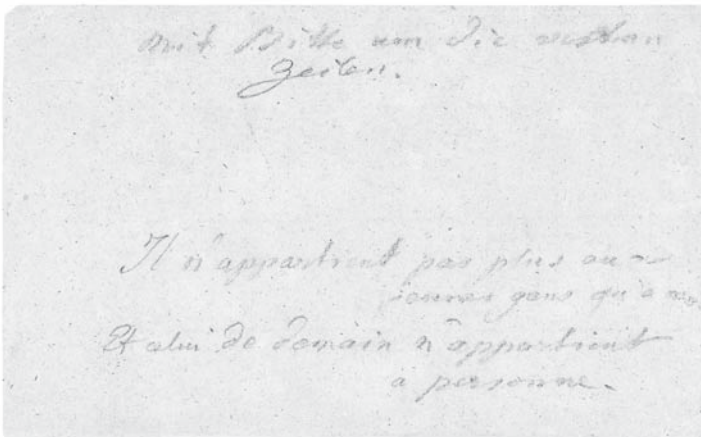 mit Bitte um die ersten
Zeilen.
Il n'appartient pas plus aux
jeunes gens qu'a
Et celui de demain n'appartient
a personne.